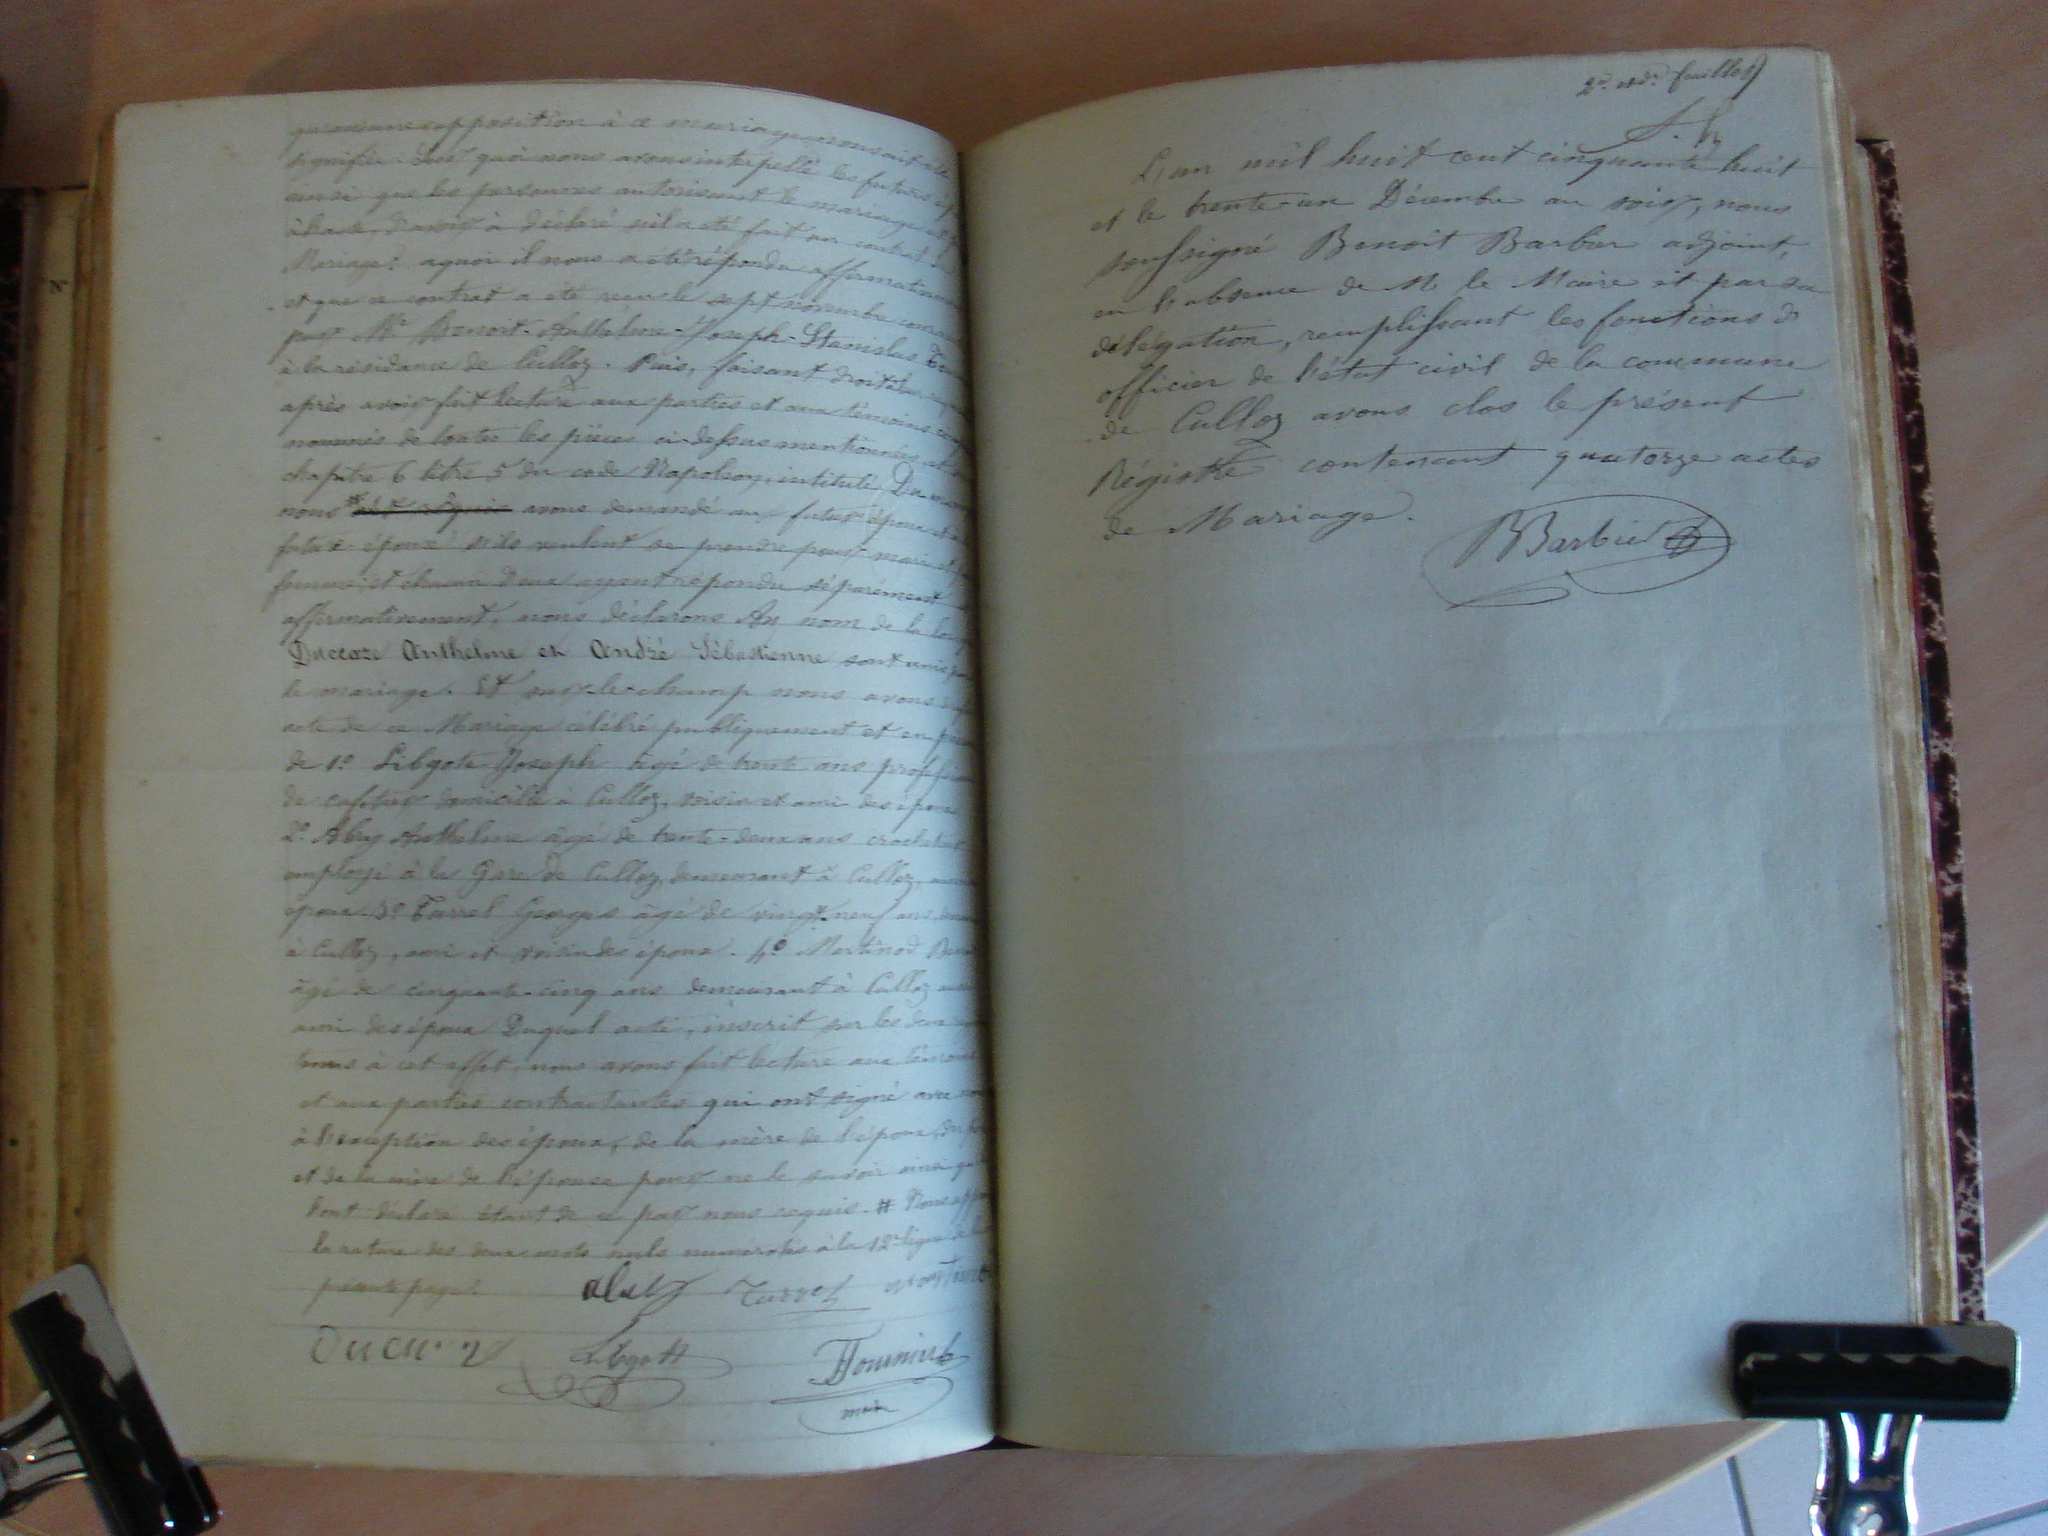 qu'aucune opposition à ce mariage nous ait été
signifiée. Sur quoi nous avons interpellé les futurs
ainsi que les personnes autorisant le mariage et
à déclaré s'il a été fait un contrat de
Mariage? a quoi il nous a été répondu affirmativement
et que ce contrat a été reçu le sept novembre
par Me Benoit-Anthelme-Joseph-Stanislas
à la résidence de Culloz. Puis, faisant droit
après avoir fait lecture aux parties et aux témoins
nommés de toutes les pièces ci-dessus mentionnées et
chapitre 6 titre 5 du code Napoléon, intitulé, Du
nous avons demandé au futur époux et à
future épouse s'ils veulent se prendre pour mari et
femme, et chacun d'eux ayant répondu séparément et
affirmativement, nous déclarons Au nom de la loi
Duccoze Anthelme et André Sébastienne sont unis par
le mariage. Et sur-le-champ nous avons
acte de ce Mariage célébré publiquement et en
de 1º Libgote Joseph âgé de trente ans profession
de cafetier domicilié à Culloz, voisin et ami des époux
2º Abry Anthelme âgé de trente-deux ans
employé à la Gare de Culloz, demeurant à Culloz,
époux 3º Tarrel Georges âgé de vingt-neuf ans,
à Culloz, ami et voisin des époux. 4º Martinod
âgé de cinquante-cinq ans demeurant à Culloz
ami des époux Duquel acte, inscrit sur les deux
tenus à cet effet, nous avons fait lecture aux témoins
et aux parties contractantes qui ont signé avec nous
à l'exception des époux, de la mère de l'époux, du
et de la mère de l'épouse pour ne le savoir ainsi qu'
l'ont déclaré étant de ce par nous requis. # Nous
la rature des deux mots nuls numérotés à la 12e ligne
présente page.
Tarrel
Libgott
maire
2e et de feuillet
L'an mil huit cent cinquante huit
et le trente-un Décembre au soir, nous
soussigné Benoit Barbier adjoint,
en l'absence de M le Maire et par sa
délégation, remplissant les fonctions d'
officier de l'état civil de la commune
de Culloz avons clos le présent
Régistre contenant quatorze actes
de Mariage.
BBarbier